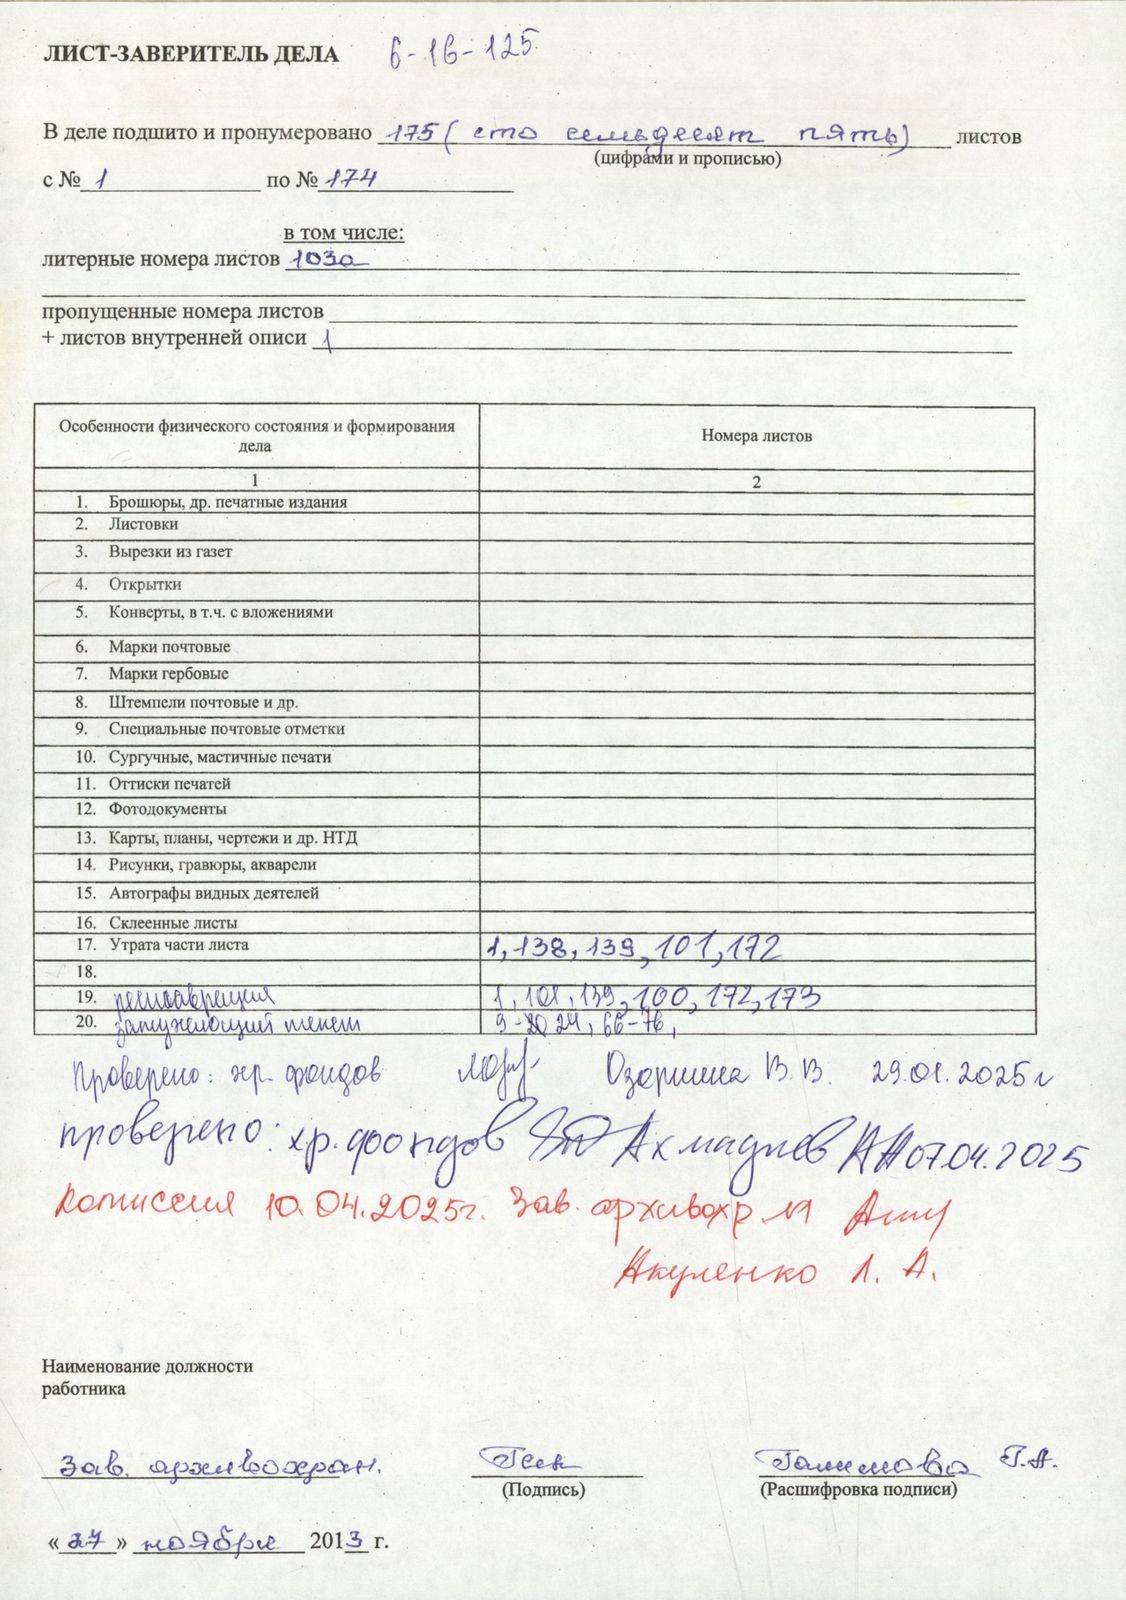 ЛИСТ-ЗАВЕРИТЕЛЬ ДЕЛА 6-1в-125
В деле подшито и пронумеровано 175 (сто семьдесят пять) листов
(цифрами и прописью)
с № 1 по № 174
в том числе:
литерные номера листов 103а
пропущенные номера листов
+ листов внутренней описи 1
Особенности физического состояния и формирования дела Номера листов
1 2
1. Брошюры, др. печатные издания
2. Листовки
3. Вырезки из газет
4. Открытки
5. Конверты, в т.ч. с вложениями
6. Марки почтовые
7. Марки гербовые
8. Штемпели почтовые и др.
9. Специальные почтовые отметки
10. Сургучные, мастичные печати
11. Оттиски печатей
12. Фотодокументы
13. Карты, планы, чертежи и др. НТД
14. Рисунки, гравюры, акварели
15. Автографы видных деятелей
16. Склеенные листы
17. Утрата части листа 1, 138, 139, 101, 172
18.
19. реставрация 1, 101, 139, 100, 172, 173
20. затухающий текст 9-2024, 66-76,
Проверено: хр. фондов Озорнина В.В. 29.01.2025г
проверено: хр. фондов Ахмадиев АА 07.04.2025
Комиссия 10.04.2025г. Зав. архивохр
Якуленко Л. А.
Наименование должности
работника
Зав. архивохран. Галимова Г.А.
(Подпись) (Расшифровка подписи)
«27» ноября 2013 г.